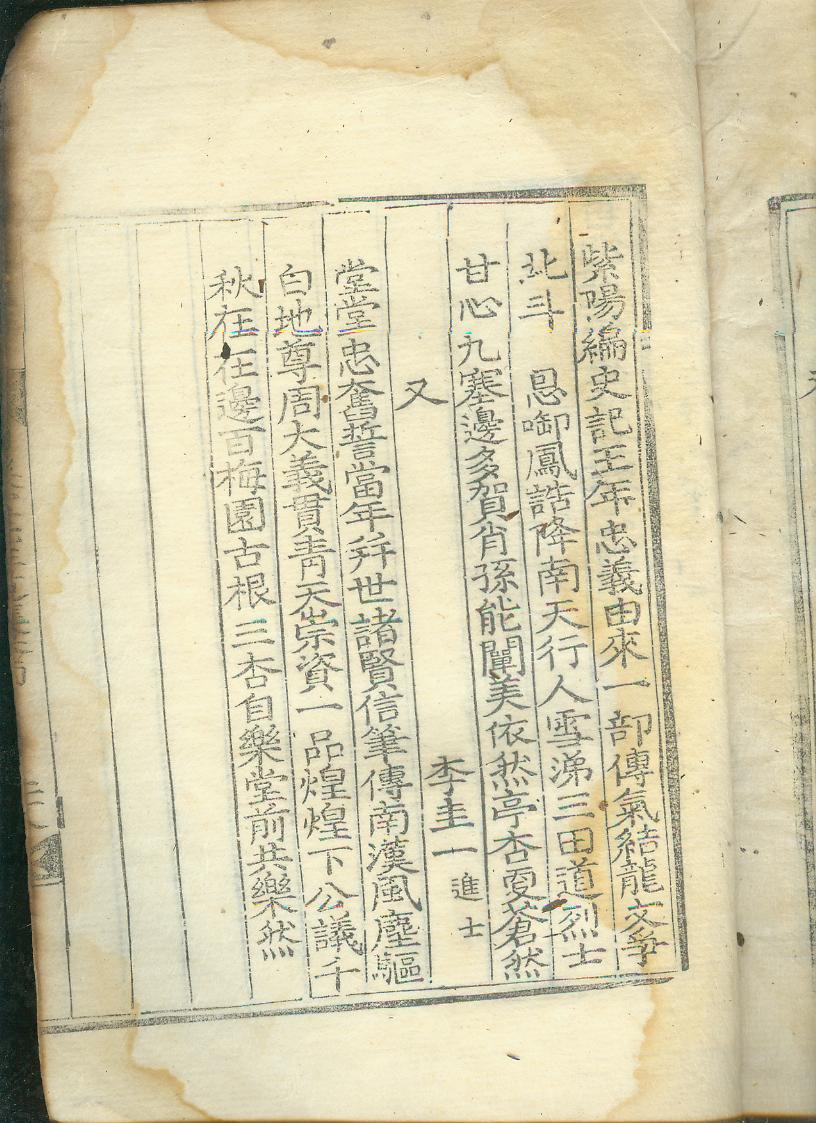 紫陽編史記王年忠義由來一部傳氣結龍文爭
北斗 恩啣鳳誥降南天行人雪涕三田道烈士
甘心九塞邊多賀肖孫能闡美依然亭杏更蒼然
又 李圭一 進士
堂堂忠奮誓當年幷世諸賢信筆傳南漢風塵驅
白地尊周大義貫靑天崇資一品煌煌下公議千
秋在在邊百梅園古根三杏自樂堂前共樂然